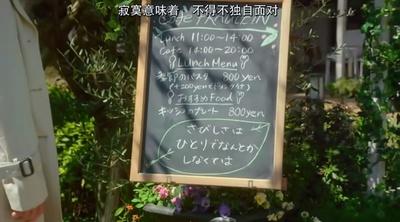 寂寞意味着　不得不独自面对
Cafe FRAULEIN
Lunch 11:00~14:00
Cafe 14:00~20:00
Lunch Menu
季節のパスタ 900yen
(+200yenでドリンク付)
おすすめFood
キッシュプレート 800yen
さびしさは
ひとりでなんとか
しなくては